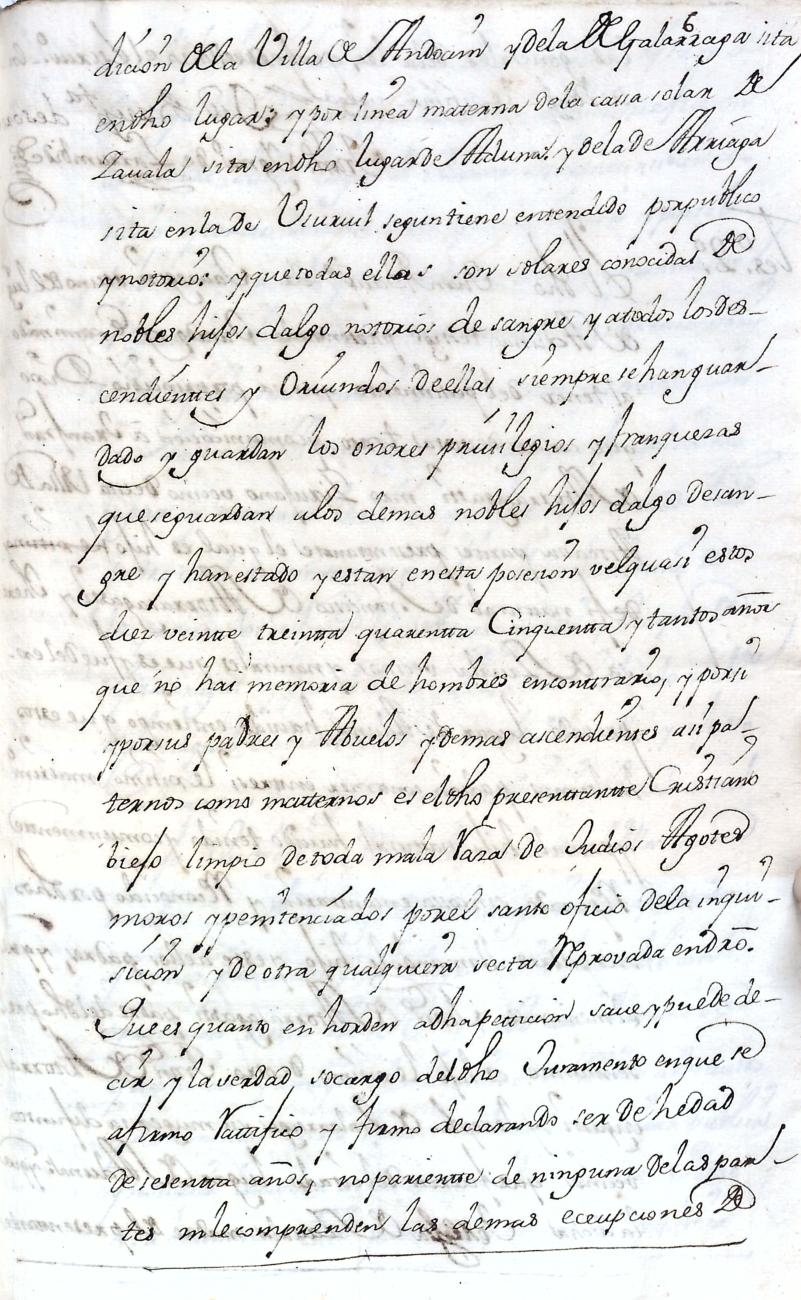 6
dición de la Villa de Andoain y dela de Galarraga sita
en dho lugar; y por linea materna dela cassa solar de
Zauala sita en dho lugar de Aduna: y dela de Arriaga
sita en la de Usurvil segun tiene entendido por publico
y notorio: y que todas ellas son solares conocidas de
nobles hijos dalgo notorios de sangre y atodos los des-
cendienttes y Oriundos de ellas siempre se han guar-
dado y guardan los onores priuilegios y franquezas
que se guardan alos demas nobles hijos dalgo de san-
gre y han estado y estan en esta posesion vel quasi estos
diez veintte treintta quarentta Cinquentta y tantos años
que no hai memoria de hombres en conttrario, y por si
y por sus padres y Abuelos y demas ascendientes asi pa-
ternos como matternos es el dho presenttantte Cristiano
biejo limpio de toda mala Raza de Judios Agotes
moros y penitenciados por el santo oficio dela inqui-
sición y de otra qualquiera secta Reprovada en dro.
Que es quanto en horden adha petticion save y puede de-
cir y la verdad socargo del dho Juramento en que se
afirmo Rattifico y firmo declarando ser de hedad
de sesentta años, no parientte de ninguna de las par-
tes ni le comprenden las demas ecepciones de